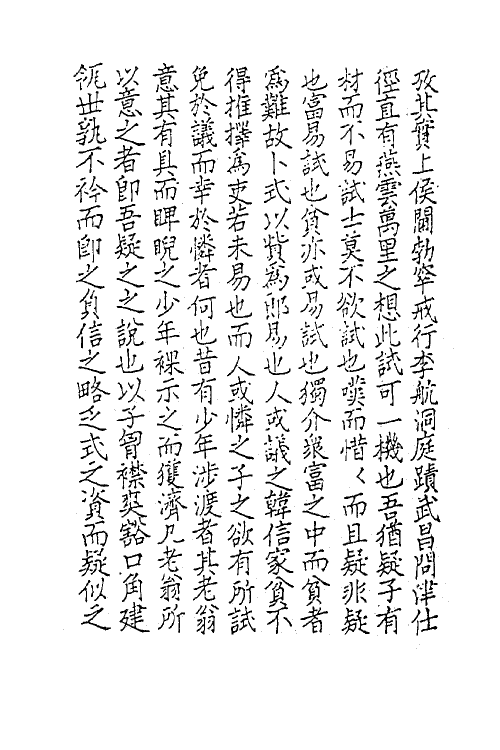 攷其實上侯閫勃窣戒行李航洞庭蹟武昌問津仕
徑直有燕雲萬里之想此試可一機也吾猶疑子有
材而不易試士莫不欲試也嘆而惜〱而且疑非疑
也富易試也貧亦或易試也獨介衆富之中而貧者
為難故卜式以貲為郎易也人或議之韓信家貧不
得推擇為吏若未易也而人或憐之子之欲有所試
免於議而幸於憐者何也昔有少年涉渡者其老翁
意其有具而睥睨之少年裸示之而獲濟凡老翁所
以意之者即吾疑之之說也以子胷襟奘豁口角建
瓴世孰不衿而即之負信之略乏式之資而疑似之